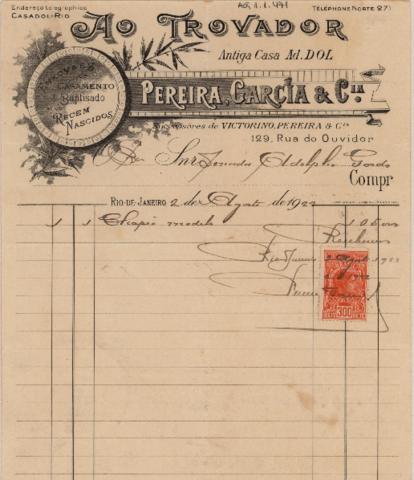 Endereço telegraphico
CASADOL-RIO
TELEPHONE NORTE 871
AO TROVADOR
Antiga Casa Ad. DOL
CASAMENTO
Baptisado
RECEM
NASCIDOS
PEREIRA, GARCÍA & Cia
Successores de VICTORINO, PEREIRA & Cia
129, Rua do Ouvidor
Snr Senador Adolpho Gordo
Compr
RIO-DE-JANEIRO 2 de Agosto de 1922
1 1 Chapéo modelo
Recebemos
Rio de Janeiro
300